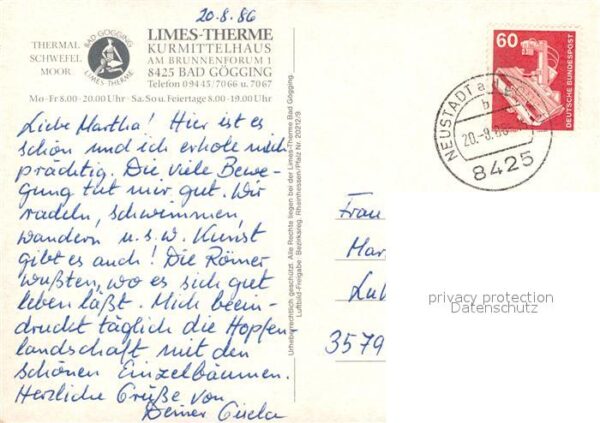 20.8.86
THERMAL
SCHWEFEL
MOOR
BAD GÖGGING
LIMES-THERME
LIMES-THERME
KURMITTELHAUS
AM BRUNNENFORUM 1
8425 BAD GÖGGING
Telefon 0 94 45 / 70 66 u. 70 67
Mo - Fr 8.00 - 20.00 Uhr · Sa. So u. Feiertage 8.00 - 19.00 Uhr
Liebe Martha! Hier ist es
schön und ich erhole mich
prächtig. Die viele Bewe-
gung tut mir gut. Wir
radeln, schwimmen,
wandern u.s.w. Kunst
gibt es auch! Die Römer
wußten, wo es sich gut
leben läßt. Mich beein-
druckt täglich die Hopfen-
landschaft mit den
schönen Einzelbäumen.
Herzliche Grüße von
Deiner Gisela
Urheberrechtlich geschützt. Alle Rechte liegen bei der Limes-Therme Bad Gögging.
Luftbild-Freigabe: Bezirksreg. Rheinhessen/Pfalz Nr. 20212/9
60
DEUTSCHE BUNDESPOST
NEUSTADT a.d.
b
20.-8.86
8425
Frau
Mar
3579
privacy protection
Datenschutz